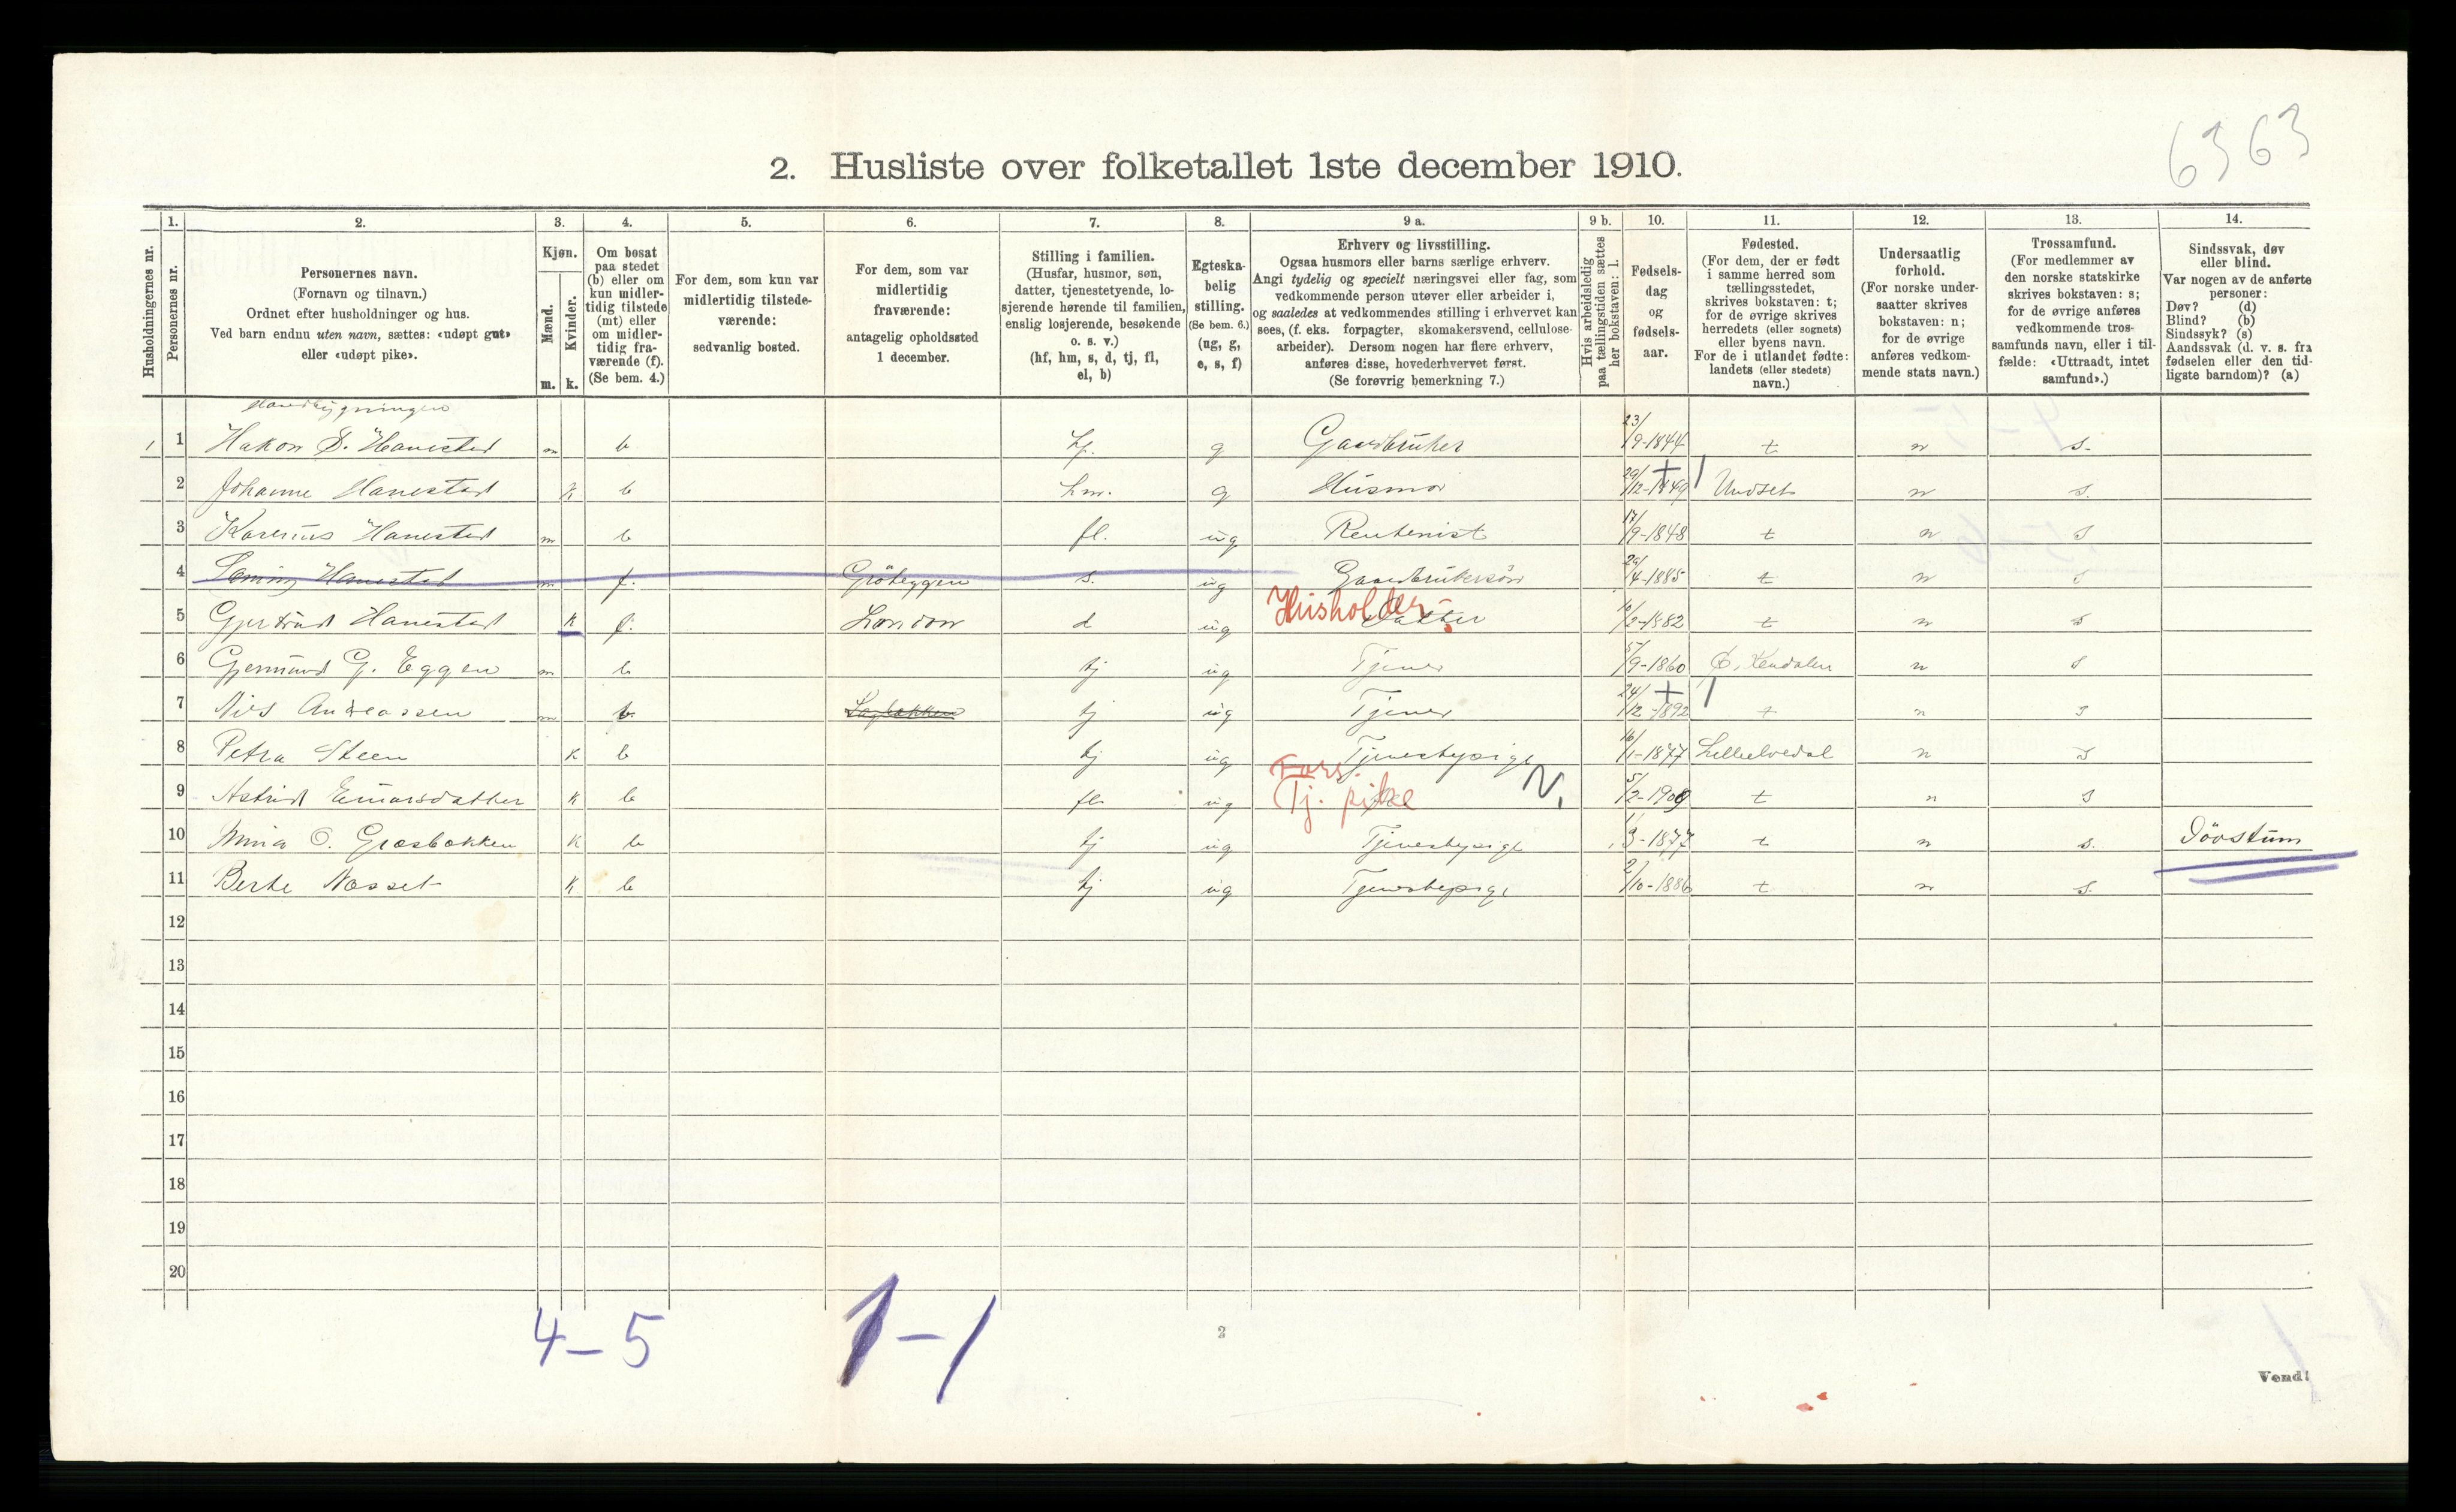 6363
2. Husliste over folketallet 1ste december 1910.
Husholdningernes nr.
1. Personernes nr.
2. Personernes navn.
(Fornavn og tilnavn.)
Ordnet efter husholdninger og hus.
Ved barn endnu uten navn, sættes: «udøpt gut»
eller «udøpt pike».
3. Kjøn.
Mænd. m.
Kvinder. k.
4. Om bosat
paa stedet
(b) eller om
kun midler-
tidig tilstede
(mt) eller
om midler-
tidig fra-
værende (f).
(Se bem. 4.)
5. For dem, som kun var
midlertidig tilstede-
værende:
sedvanlig bosted.
6. For dem, som var
midlertidig
fraværende:
antagelig opholdssted
1 december.
7. Stilling i familien.
(Husfar, husmor, søn,
datter, tjenestetyende, lo-
sjerende hørende til familien,
enslig losjerende, besøkende
o. s. v.)
(hf, hm, s, d, tj, fl,
el, b)
8. Egteska-
belig
stilling.
(Se bem. 6.)
(ug, g,
e, s, f)
9 a. Erhverv og livsstilling.
Ogsaa husmors eller barns særlige erhverv.
Angi tydelig og specielt næringsvei eller fag, som
vedkommende person utøver eller arbeider i,
og saaledes at vedkommendes stilling i erhvervet kan
sees, (f. eks. forpagter, skomakersvend, cellulose-
arbeider). Dersom nogen har flere erhverv,
anføres disse, hovederhvervet først.
(Se forøvrig bemerkning 7.)
9 b. Hvis arbeidsledig
paa tællingstiden sættes
her bokstaven: l.
10. Fødsels-
dag
og
fødsels-
aar.
11. Fødested.
(For dem, der er født
i samme herred som
tællingsstedet,
skrives bokstaven: t;
for de øvrige skrives
herredets (eller sognets)
eller byens navn.
For de i utlandet fødte:
landets (eller stedets)
navn.)
12. Undersaatlig
forhold.
(For norske under-
saatter skrives
bokstaven: n;
for de øvrige
anføres vedkom-
mende stats navn.)
13. Trossamfund.
(For medlemmer av
den norske statskirke
skrives bokstaven: s;
for de øvrige anføres
vedkommende tros-
samfunds navn, eller i til-
fælde: «Uttraadt, intet
samfund».)
14. Sindssvak, døv
eller blind.
Var nogen av de anførte
personer:
Døv? (d)
Blind? (b)
Sindssyk? (s)
Aandssvak (d. v. s. fra
fødselen eller den tid-
ligste barndom)? (a)
1 1 Hakon S. Hanestad m b hf. g Gaardbruker 23/9-1844 t n s.
2 Johanne Hanestad k b hm. g Husmor 29/12-1849 Undset n s.
3 Karenius Hanestad m b fl. ug Rentenist 17/9-1848 t n s
4 Hanestad m f. Gröteggen s. ug Gaardbrukersön 26/4-1885 t n s
5 Gjertrud Hanestad k f. London d ug Datter Husholder- 10/2-1882 t n s
6 Gjermund G. Eggen m b tj ug Tjener 5/9-1860 Ø. Rendalen n s
7 Nils Andreassen m b tj ug Tjener 24/12-1892 t n s
8 Petra Steen k b tj ug Tjenestepige 16/1-1877 Lilleelvedal n s
9 Astrid Einarsdatter k b fl ug Fors. Tj. pike N. 5/2-1909 t n s
10 Mina O. Græsbakken k b tj ug Tjenestepige 3-1877 t n s. Dövstum
11 Berte Næsset k b tj ug Tjenestepige 2/10-1886 t n s.
12
13
14
15
16
17
18
19
20
4-5 1-1
2
Vend!